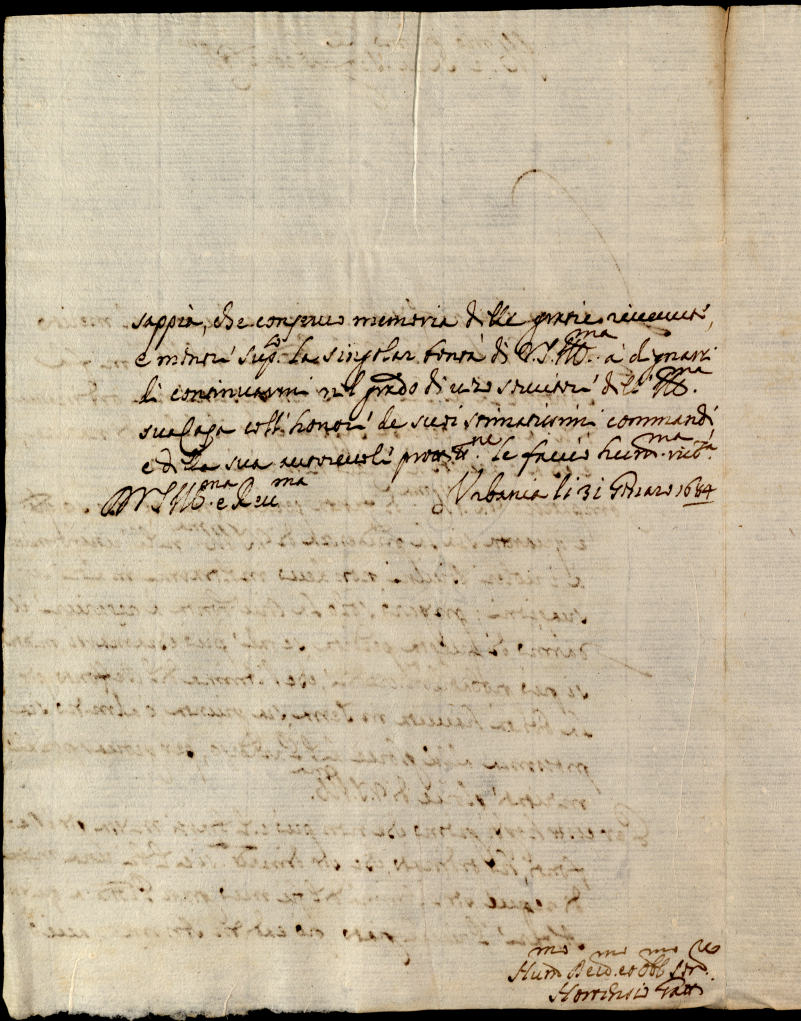 sappia, che conservo memoria delle gratie riceuute,
e mentre sup.co la singolar bontà di V.S. Ill.ma à degnarsi
di continuarmi nel grado di uero seruitore di V.S. Ill.ma
colli honori de suoi stimatissimi commandi,
e della sua autoreuole prott.ne le faccio hum.ma riu.a
D V S Ill.ma e Reu.ma Vrbania li 31 1684
Hum.mo Deuo.mo et Obb.mo Ser.re
Hortensio